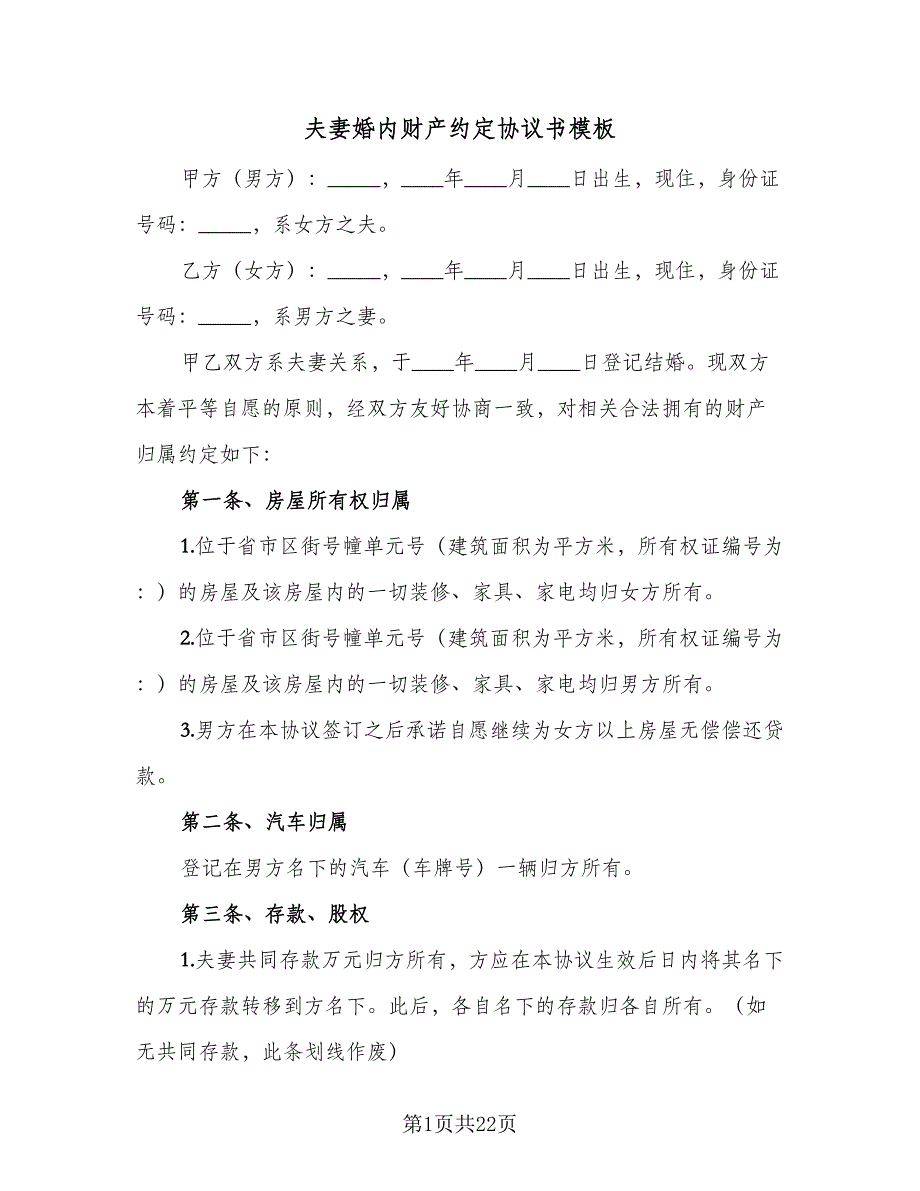 夫妻婚内财产约定协议书模板
甲方（男方）：_____，____年____月____日出生，现住，身份证
号码：_____，系女方之夫。
乙方（女方）：_____，____年____月____日出生，现住，身份证
号码：_____，系男方之妻。
甲乙双方系夫妻关系，于____年____月____日登记结婚。现双方
本着平等自愿的原则，经双方友好协商一致，对相关合法拥有的财产
归属约定如下：
第一条、房屋所有权归属
1.位于省市区街号幢单元号（建筑面积为平方米，所有权证编号为
：）的房屋及该房屋内的一切装修、家具、家电均归女方所有。
2.位于省市区街号幢单元号（建筑面积为平方米，所有权证编号为
：）的房屋及该房屋内的一切装修、家具、家电均归男方所有。
3.男方在本协议签订之后承诺自愿继续为女方以上房屋无偿偿还贷
款。
第二条、汽车归属
登记在男方名下的汽车（车牌号）一辆归方所有。
第三条、存款、股权
1.夫妻共同存款万元归方所有，方应在本协议生效后日内将其名下
的万元存款转移到方名下。此后，各自名下的存款归各自所有。（如
无共同存款，此条划线作废）
第1页共22页